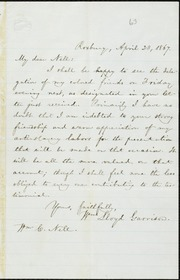 Roxbury, April 20, 1867.
My dear Nell:
I shall be happy to see the dele-
gation of my colored friends on Tuesday
evening next, as designated in your let-
ter just received. Primarily, I have no
doubt that I am indebted to your strong
friendship and warm appreciation of my
anti-slavery labors for the presentation
that will be made on that occasion. It
will be all the more valued on that
account; though I shall feel none the less
obliged to every one contributing to the tes-
timonial.
Yours, faithfully,
Wm. Lloyd Garrison.
Wm. C. Nell.